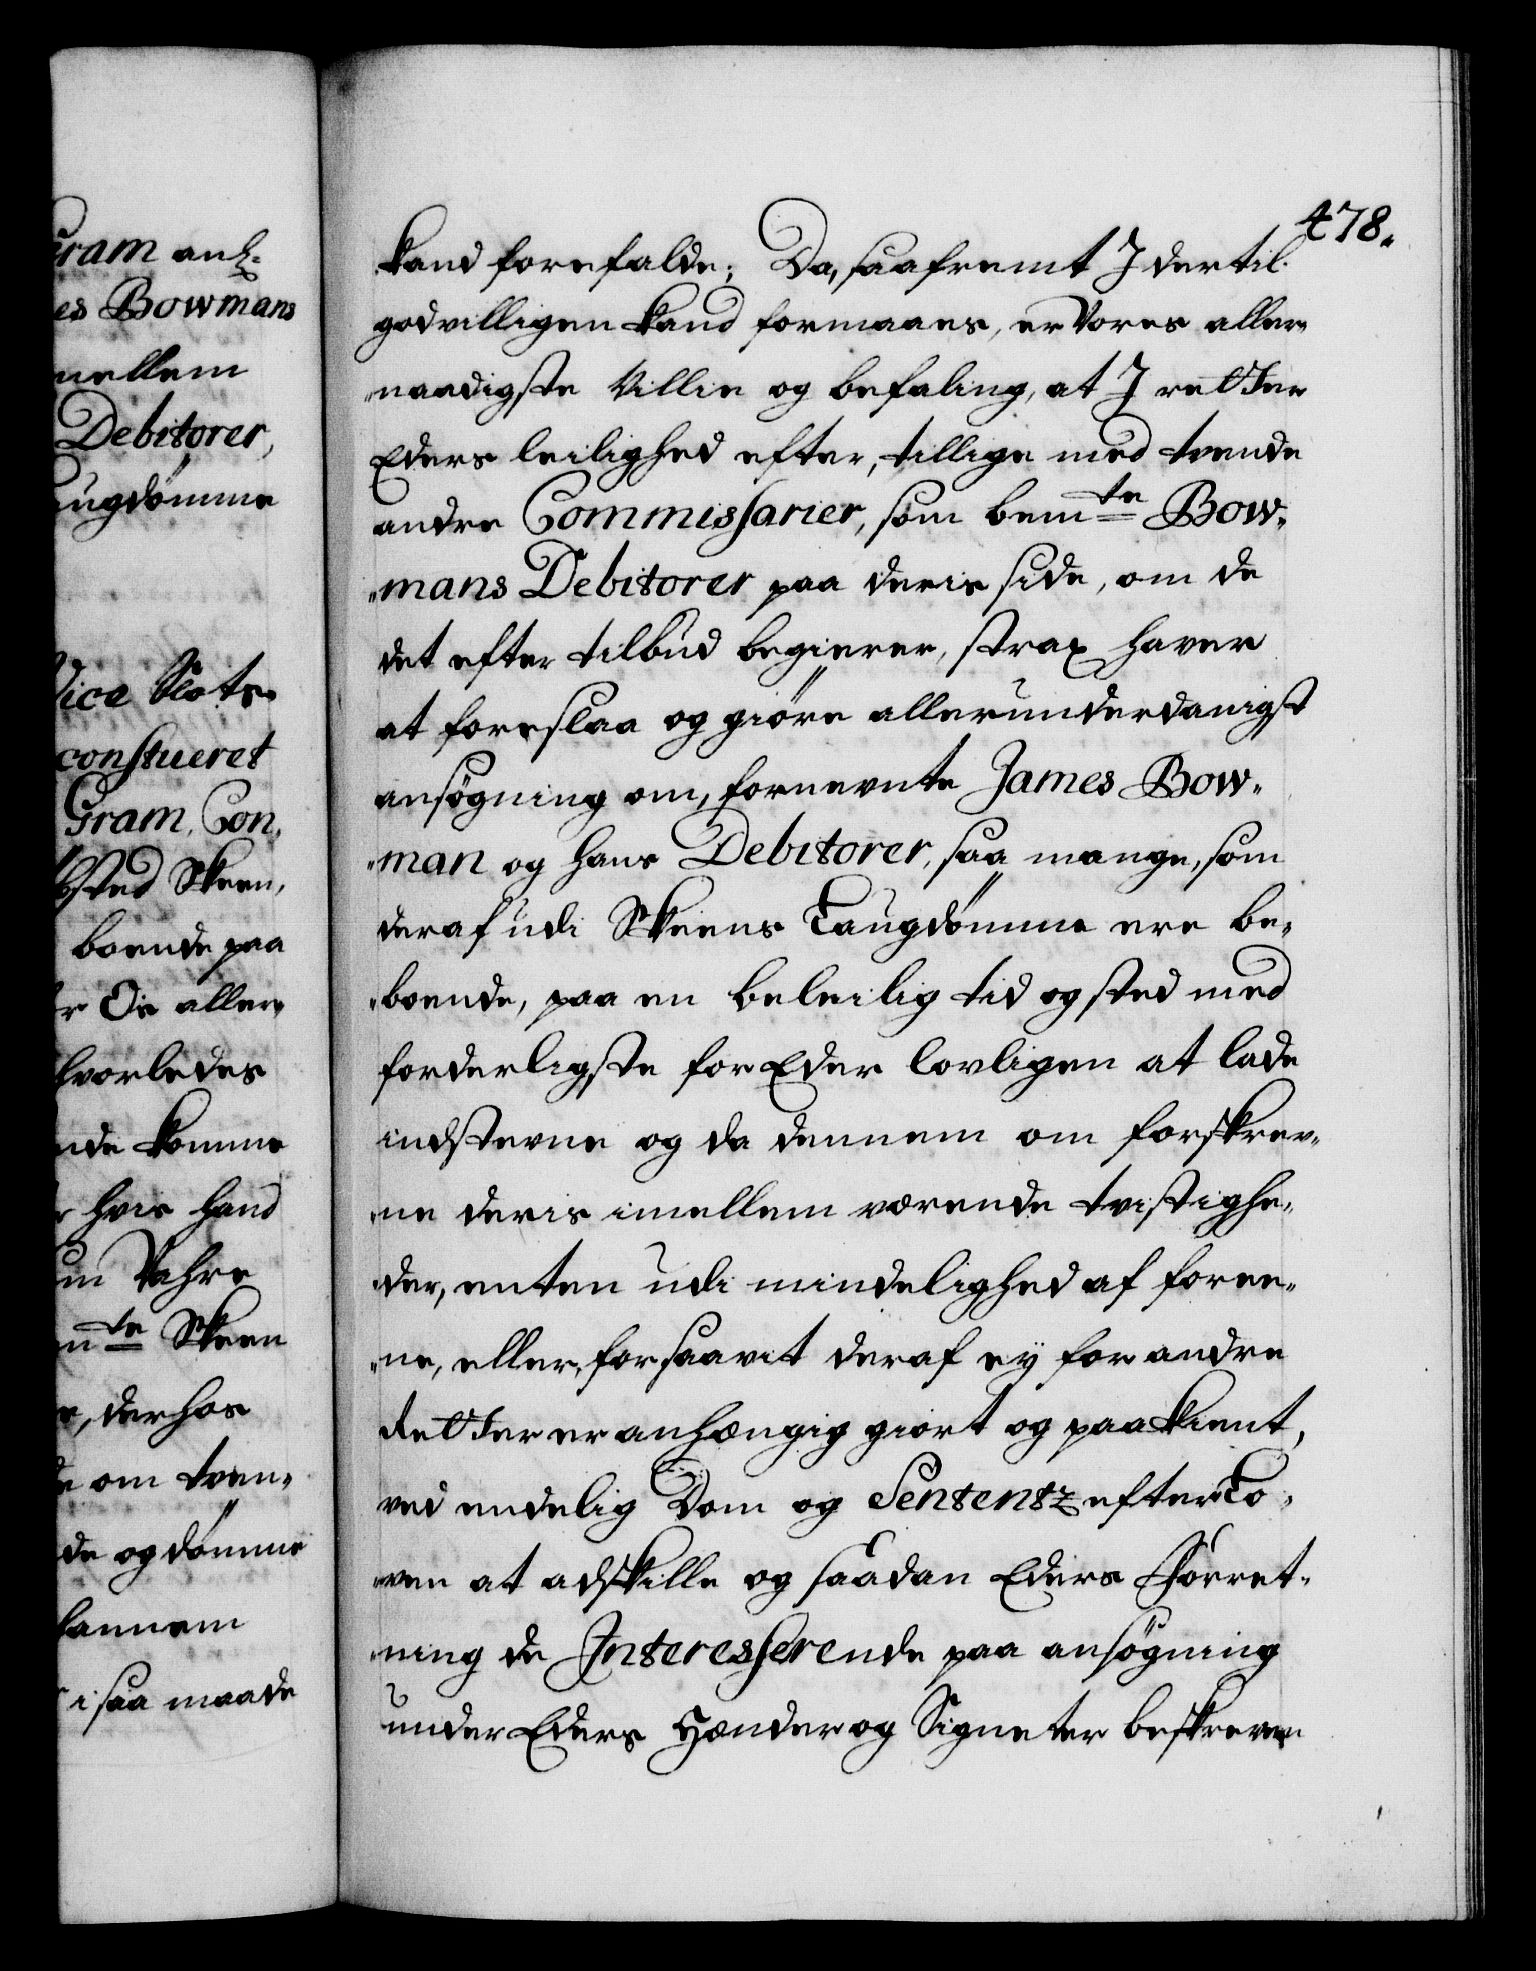 Gram anl:
es Bowmans
mellem
Debitorer,
augdømme
Vice Slots-
constueret
Gram, Con-
sted Skeen,
boende paa
r Os aller-
hvorledes
nde komme
hvis hand
um Vahre
nte Skeen
e, derhos
de om tven-
de og dømme
dannem
i saa maade
478.
kand forefalde; Da, saafremt J dertil
godvilligen kand formaaes, er Vores aller-
naadigste Villie og befaling, at J retter
Eders leilighed efter, tillige med tvende
andre Commissarier, som bemte Bow-
mans Debitorer paa deris side, om de
det efter tilbud begierer, strax haver
at foreslaa og giøre allerunderdanigst
ansøgning om, fornevnte James Bow-
man og hans Debitorer, saa mange, som
deraf udi Skeens Laugdømme ere be-
boende, paa en beleilig tid og sted med
forderligste for Eder lovligen at lade
indstevne og da dennem om forskrev-
ne deris imellem værende tvistighe-
der, enten udi mindelighed af foree-
ne, eller, forsaavit deraf ey for andre
Retter er anhængig giort og paakient,
ved endelig Dom og Sententz efter Lo-
ven at adskille og saadan Eders Forret-
ning de Interesserende paa ansøgning
under Eders Hænder og Signeter beskreven